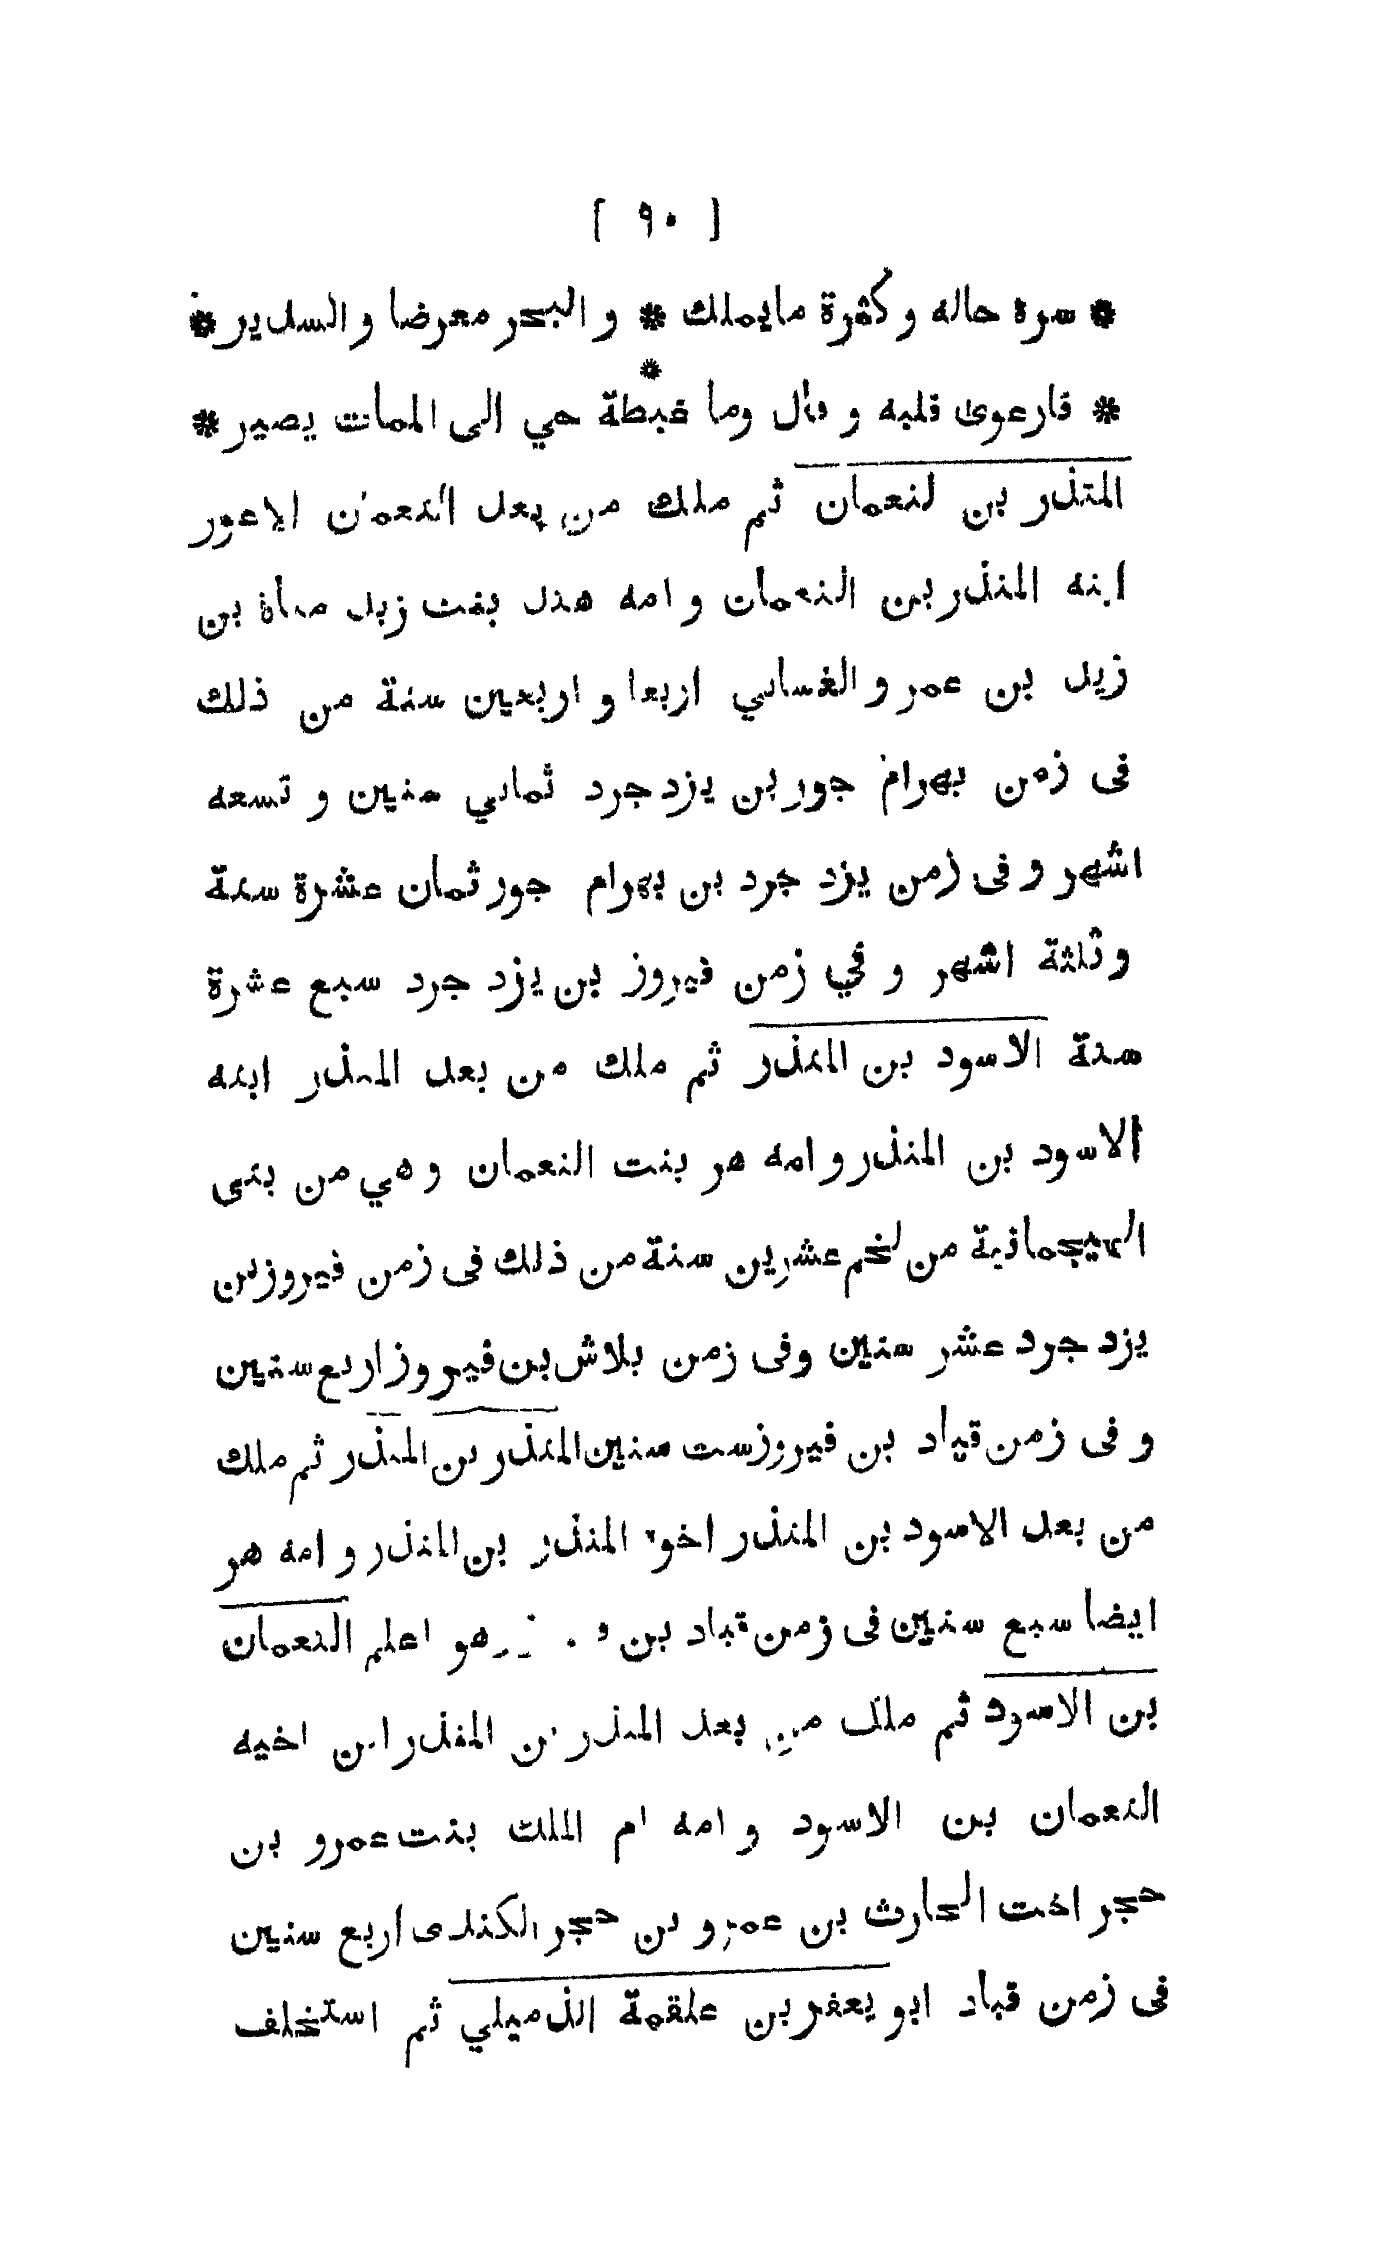 [ ٩٠ ]
* سرة حاله و كثرة مايملك * و البحر معرضا و السدير *
*
* فارعوى قلبه و قال وما غبطة حي الى الممات يصير *
المنذر بن لنعمان ثم ملك من بعد النعمان الاعور
ابنه المنذر بن النعمان و امه هند بنت زيد مناة بن
زيد بن عمر و الغساني اربعا و اربعين سنة من ذلك
فى زمن بهرام جور بن يزد جرد ثماني سنين و تسعه
اشهر و فى زمن يزد جرد بن بهرام جور ثمان عشرة سنة
و ثلثة اشهر و في زمن فيروز بن يزد جرد سبع عشرة
سنة الاسود بن المنذر ثم ملك من بعد المنذر ابنه
الاسود بن المنذر و امه هر بنت النعمان و هي من بنى
الهيجمانة من لخم عشرين سنة من ذلك فى زمن فيروز بن
يزد جرد عشر سنين وفى زمن بلاش بن فيروز اربع سنين
و فى زمن قباد بن فيروز ست سنين المنذر بن المنذر ثم ملك
من بعد الاسود بن المنذر اخوه المنذر بن المنذر و امه هر
ايضا سبع سنين فى زمن قباد بن هو اعلم النعمان
بن الاسود ثم ملك من بعد المنذر بن المنذر ابن اخيه
النعمان بن الاسود و امه ام الملك بنت عمرو بن
حجر اخت الحارث بن عمرو بن حجر الكندى اربع سنين
فى زمن قباد ابو يعفر بن علقمة الذميلي ثم استخلف